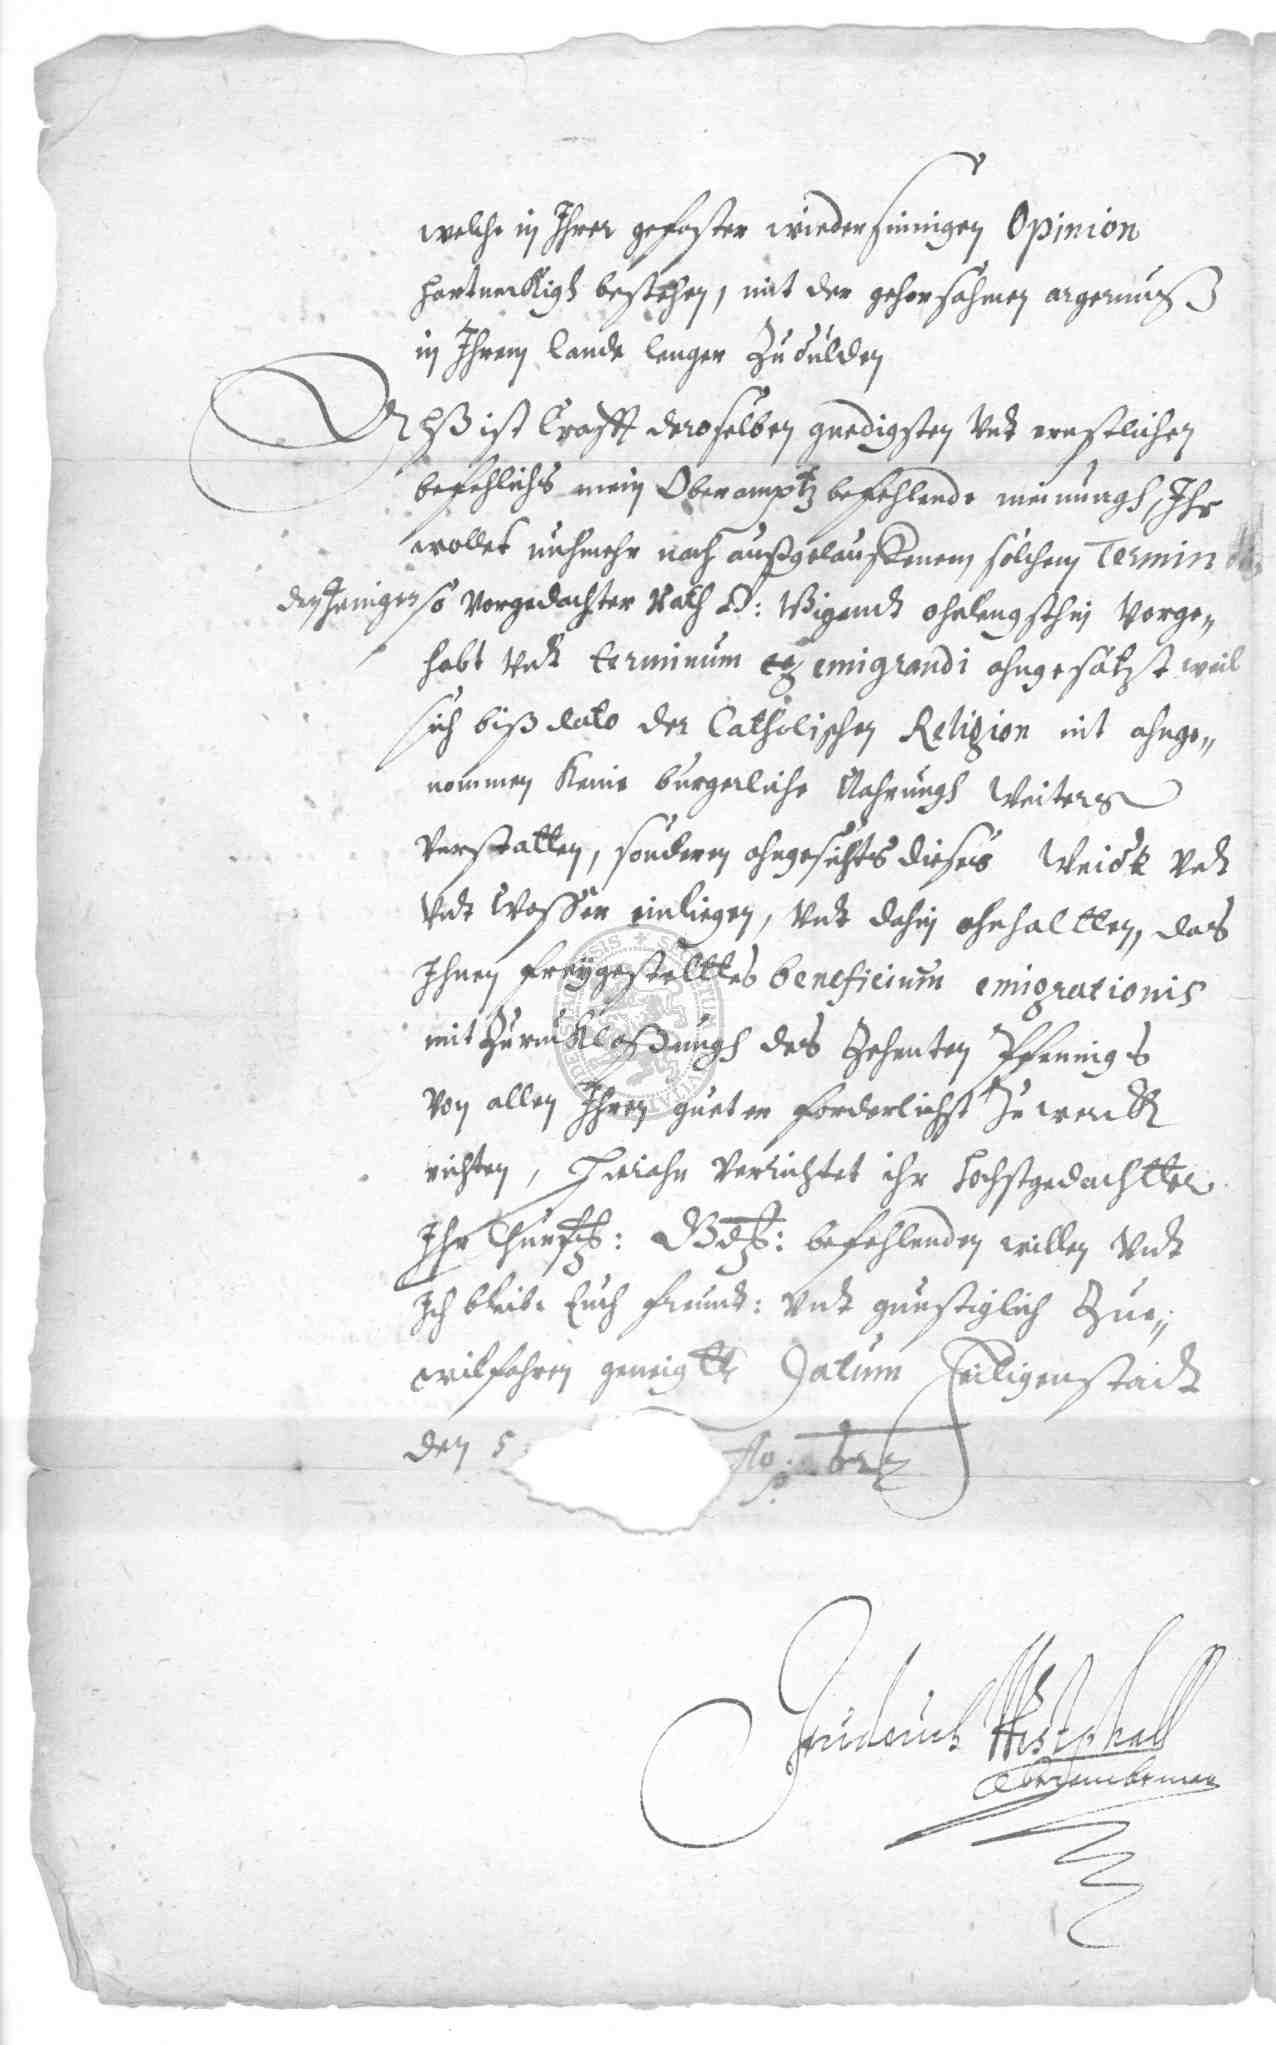 welche in Ihrer gefaster wiedersinnigen Opinion
hartneckigh bestehen, mit der gehorsahmen argernuß
in Ihrem lande lenger zu dulden
Deß ist Crafft deroselben gnedigsten Undt ernstlichen
befehlichs mein Oberamptz befehlende meinungh, Ihr
wollet nuhmehr nach außgelauffenem solchem Termin
denjenigen so Vorgedachter Rath D: Wigandt ohnlengsthin Vorge„
habt Undt terminum emigrandi ahngesatzt weil
sich biß dato der Catholischen Religion nit ahnge„
nommen keine burgerliche Nahrungh Weiters
Verstatten, sonderen ahngesichts dieses Weidt Undt
Undt Wasser einliegen, Undt dahin ahnhaltten, das
Ihnen freygestelttes beneficium emigrationis
mit Zurucklaßungh des Zehenten Pfennigs
Von allen Ihren gueteren forderlichst Zu werckh
richten, Hierahn Verrichtet ihr hochstgedachtter
Ihr Churfftg: Gdg: befehlenden willen Undt
Ich bleibe Euch freundt: Undt gunstiglich Zue„
wilfahren geneigtt Datum Heiligenstadt
den 5 Ao:
Friderich Westphall
Oberamtman
SIGILLUM CIVITATIS